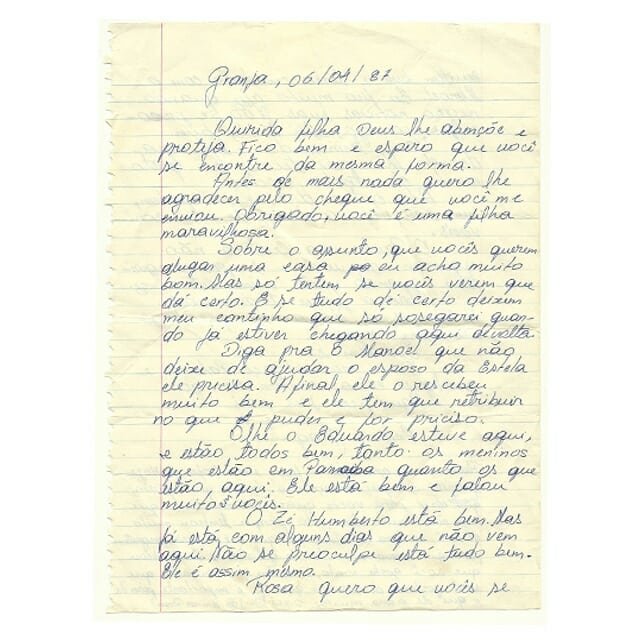 Granja, 06/04/87
Querida filha Deus lhe abençõe e
proteja. Fico bem e espero que você
se encontre da mesma forma.
Antes de mais nada quero lhe
agradecer pelo cheque que você me
enviou. Obrigado, você é uma filha
maravilhosa.
Sobre o assunto, que vocês querem
alugar uma casa eu acho muito
bom. Mas só tentem se vocês verem que
dá certo. E se tudo dei certo deixem
meu cantinho que só sossegarei quan-
do já estiver chegando aqui de volta.
Diga pra o Manoel que não
deixe de ajudar o esposo da Estela
ele precisa. Afinal, ele o rescebeu
muito bem e ele tem que retribuir
no que puder e for priciso.
Olhe o Eduardo esteve aqui,
e estão todos bem, tanto os meninos
que estão em Parnaiba quanto os que
estão, aqui. Ele está bem e falou
muito vocês.
O Zé Humberto está bem. Mas
já está com alguns dias que não vem
aqui. Não se preoculpe está tudo bem.
Ele é assim mesmo.
Rosa quero que vocês se